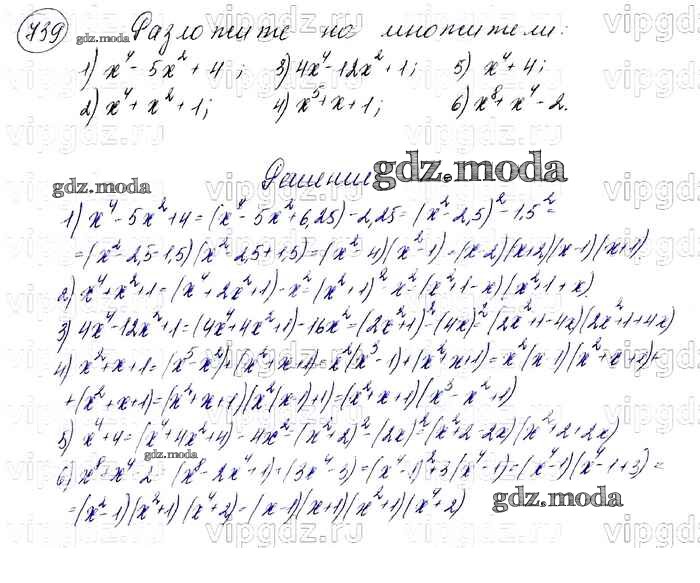 739 gdz.moda Разложите на множители:
1) x⁴ - 5x² + 4; 3) 4x⁴ - 12x² + 1; 5) x⁴ + 4;
2) x⁴ + x² + 1; 4) x⁵ + x + 1; 6) x⁸ + x⁴ - 2.
gdz.moda Решение gdz.moda
1) x⁴ - 5x² + 4 = (x⁴ - 5x² + 6,25) - 2,25 = (x² - 2,5)² - 1,5² =
= (x² - 2,5 - 1,5)(x² - 2,5 + 1,5) = (x² - 4)(x² - 1) = (x-2)(x+2)(x-1)(x+1)
2) x⁴ + x² + 1 = (x⁴ + 2x² + 1) - x² = (x² + 1)² - x² = (x² + 1 - x)(x² + 1 + x)
3) 4x⁴ - 12x² + 1 = (4x⁴ + 4x² + 1) - 16x² = (2x² + 1)² - (4x)² = (2x² + 1 - 4x)(2x² + 1 + 4x)
4) x⁵ + x + 1 = (x⁵ - x²) + (x² + x + 1) = x²(x³ - 1) + (x² + x + 1) = x²(x-1)(x² + x + 1) +
+ (x² + x + 1) = (x² + x + 1)(x²(x-1) + 1) = (x² + x + 1)(x³ - x² + 1)
5) x⁴ + 4 = (x⁴ + 4x² + 4) - 4x² = (x² + 2)² - (2x)² = (x² + 2 - 2x)(x² + 2 + 2x)
gdz.moda
6) x⁸ + x⁴ - 2 = (x⁸ - 2x⁴ + 1) + (3x⁴ - 3) = (x⁴ - 1)² + 3(x⁴ - 1) = (x⁴ - 1)(x⁴ - 1 + 3) =
= (x² - 1)(x² + 1)(x⁴ + 2) = (x-1)(x+1)(x² + 1)(x⁴ + 2) gdz.moda
gdz.moda
vipgdz.ru